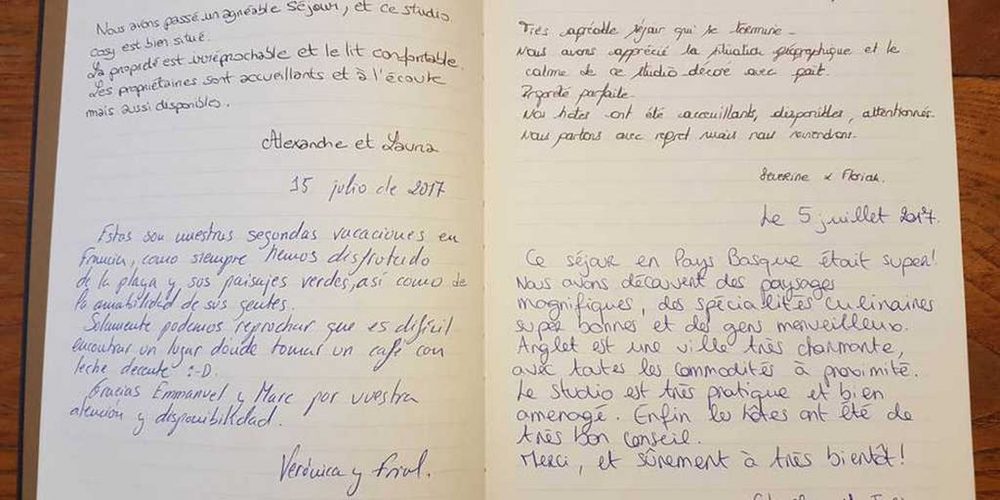 Nous avons passé un agréable séjour, et ce studio
cosy est bien situé.
La propreté est irréprochable et le lit confortable.
Les propriétaires sont accueillants et à l'écoute
mais aussi disponibles.
Alexandre et Laura
15 julio de 2017
Estas son nuestras segundas vacaciones en
Francia, como siempre hemos disfrutado
de la playa y sus paisajes verdes, así como de
la amabilidad de sus gentes.
Solamente podemos reprochar que es difícil
encontrar un lugar donde tomar un café con
leche decente :-D.
Gracias Emmanuel y Marc por vuestra
atención y disponibilidad.
Verónica y
Très agréable séjour qui se termine.
Nous avons apprécié la situation géographique et le
calme de ce studio décoré avec goût.
Propreté parfaite.
Nos hôtes ont été accueillants, disponibles, attentionnés.
Nous partons avec regret mais nous reviendrons.
Séverine & Florian.
Le 5 juillet 2017.
Ce séjour en Pays Basque était super!
Nous avons découvert des paysages
magnifiques, des spécialités culinaires
super bonnes et des gens merveilleux.
Anglet est une ville très charmante,
avec toutes les commodités à proximité.
Le studio est très pratique et bien
aménagé. Enfin les hôtes ont été de
très bon conseil.
Merci, et sûrement à très bientôt!